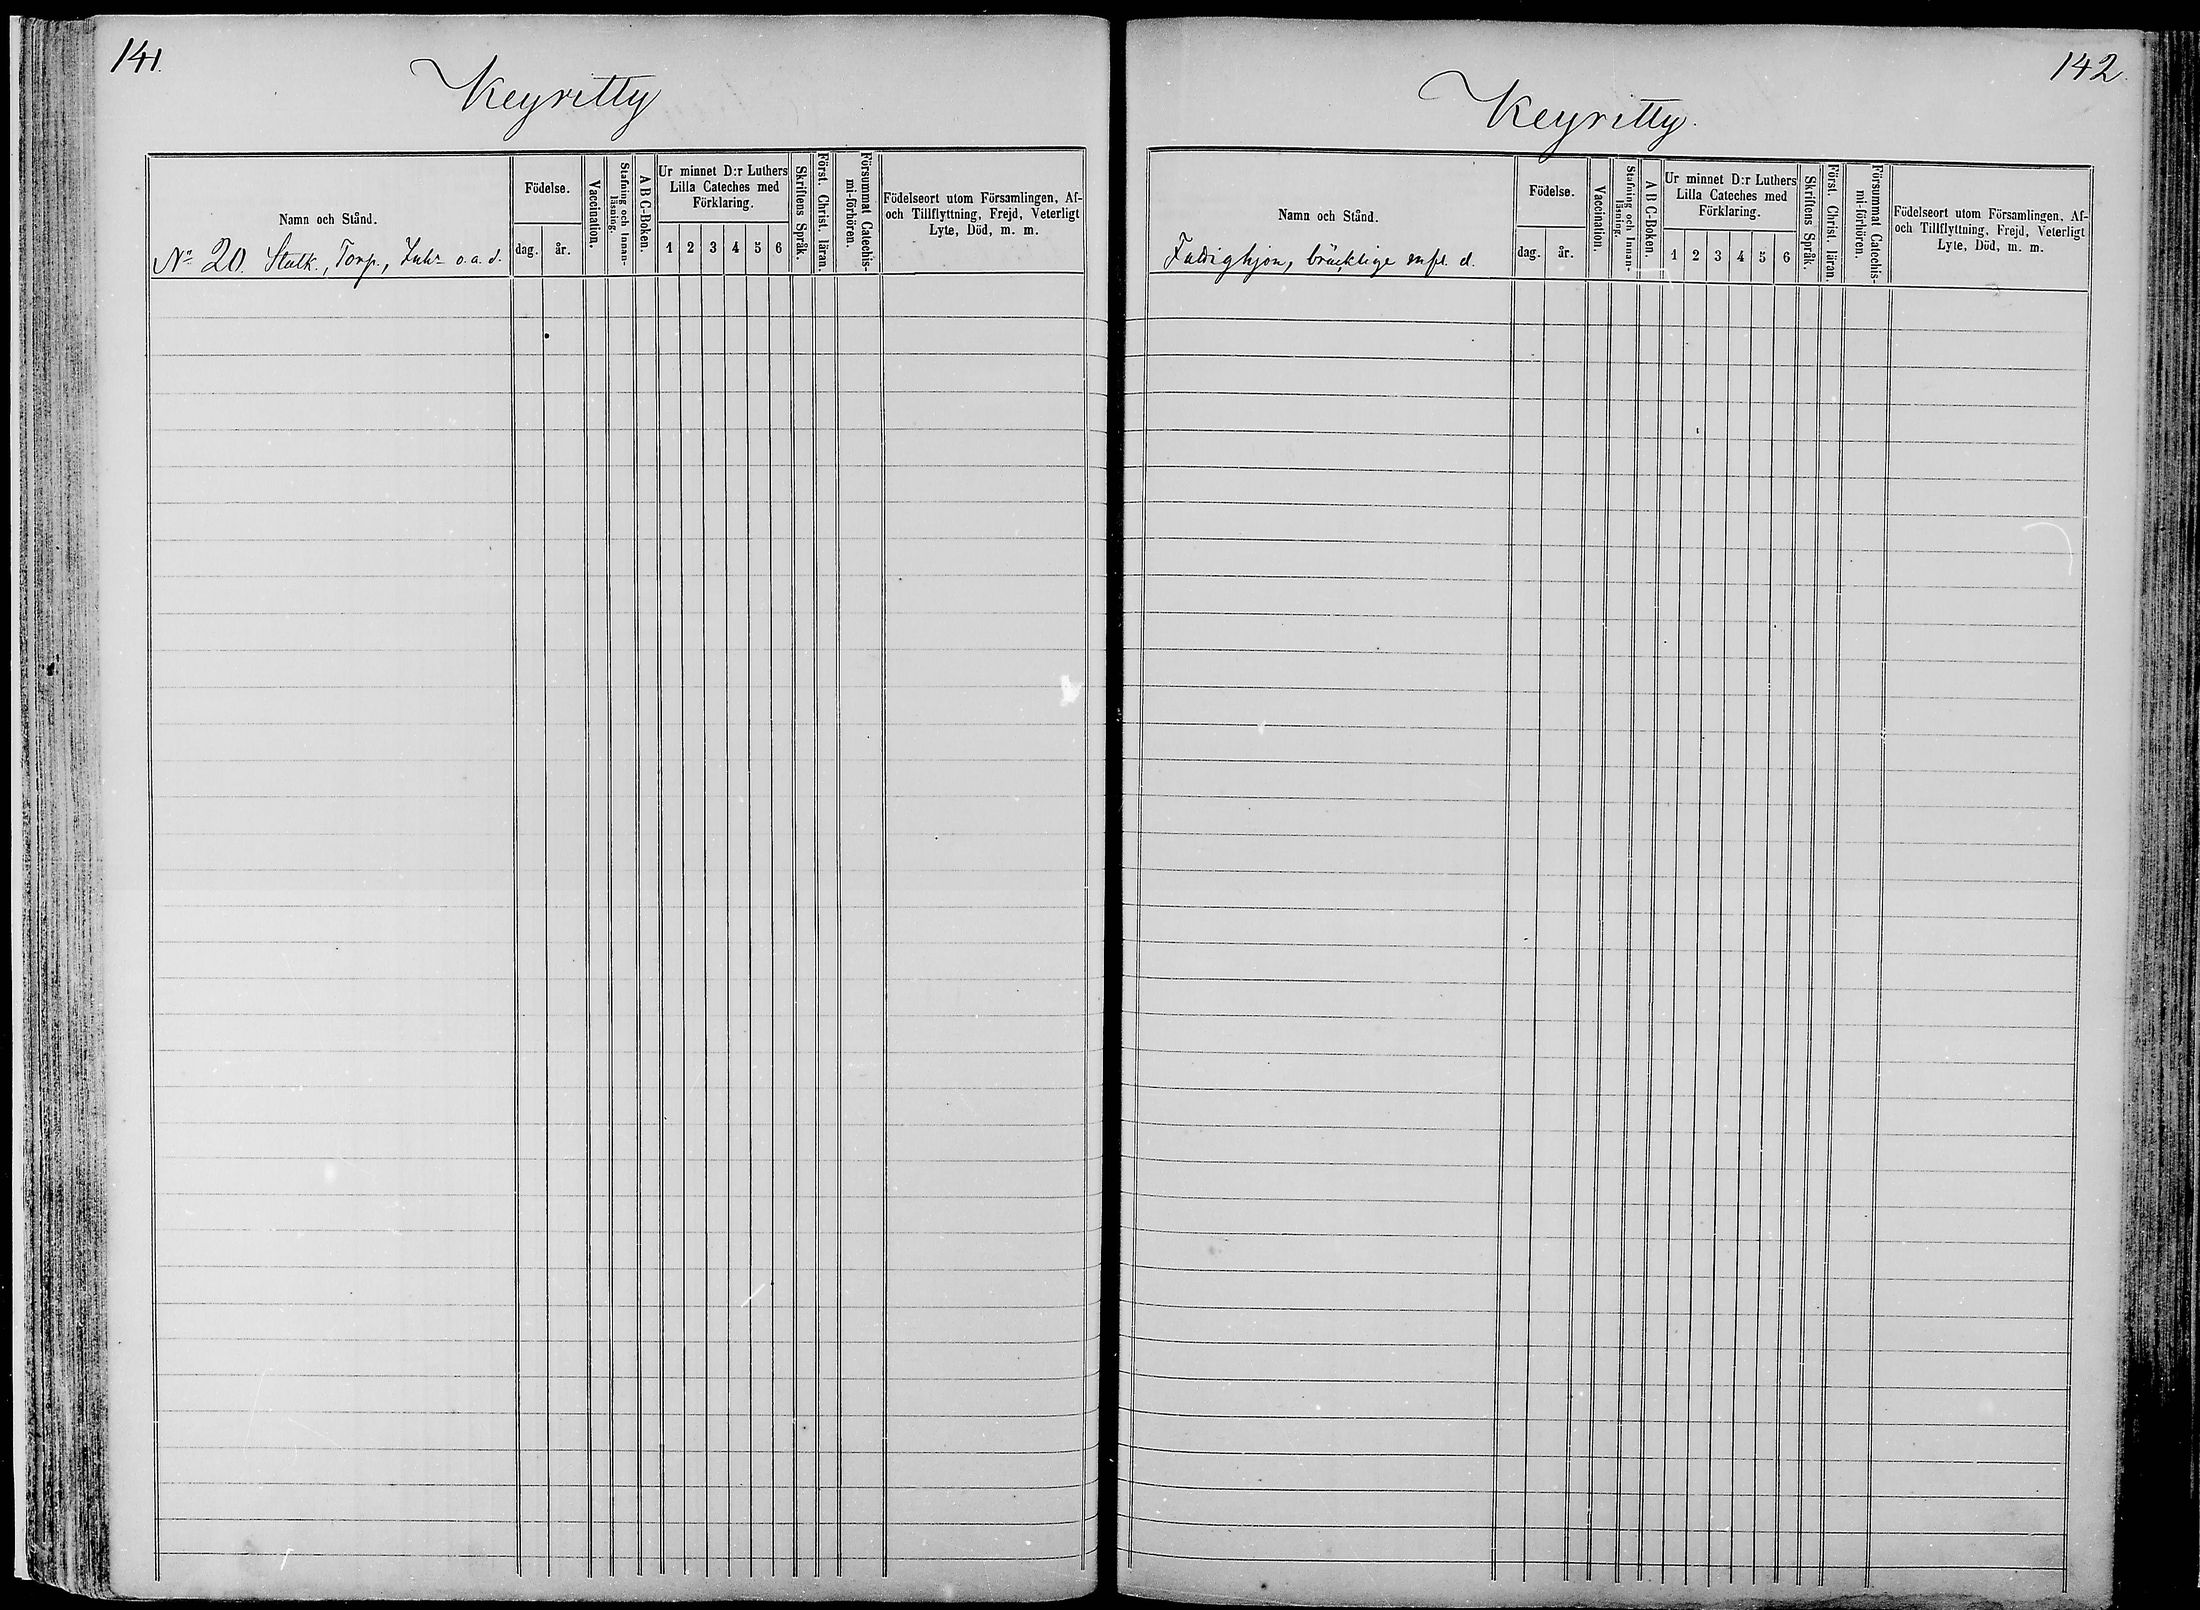 141.
Keyritty
Namn och Stånd.
No 20. Statk., Torp., Inhs o.a.d.
Födelse.
dag.
år.
Vaccination.
Stafning och Innan-
läsning.
A B C-Boken.
Ur minnet D:r Luthers
Lilla Cateches med
Förklaring.
1 2 3 4 5 6
Skriftens Språk.
Först. Christ. läran.
Försummat Catechis-
mi-förhören.
Födelseort utom Församlingen, Af-
och Tillflyttning, Frejd, Veterligt
Lyte, Död, m. m.
142.
Keyritty.
Namn och Stånd.
Fattighjon, bräcklige mfl. d.
Födelse.
dag.
år.
Vaccination.
Stafning och Innan-
läsning.
A B C-Boken.
Ur minnet D:r Luthers
Lilla Cateches med
Förklaring.
1 2 3 4 5 6
Skriftens Språk.
Först. Christ. läran.
Försummat Catechis-
mi-förhören.
Födelseort utom Församlingen, Af-
och Tillflyttning, Frejd, Veterligt
Lyte, Död, m. m.